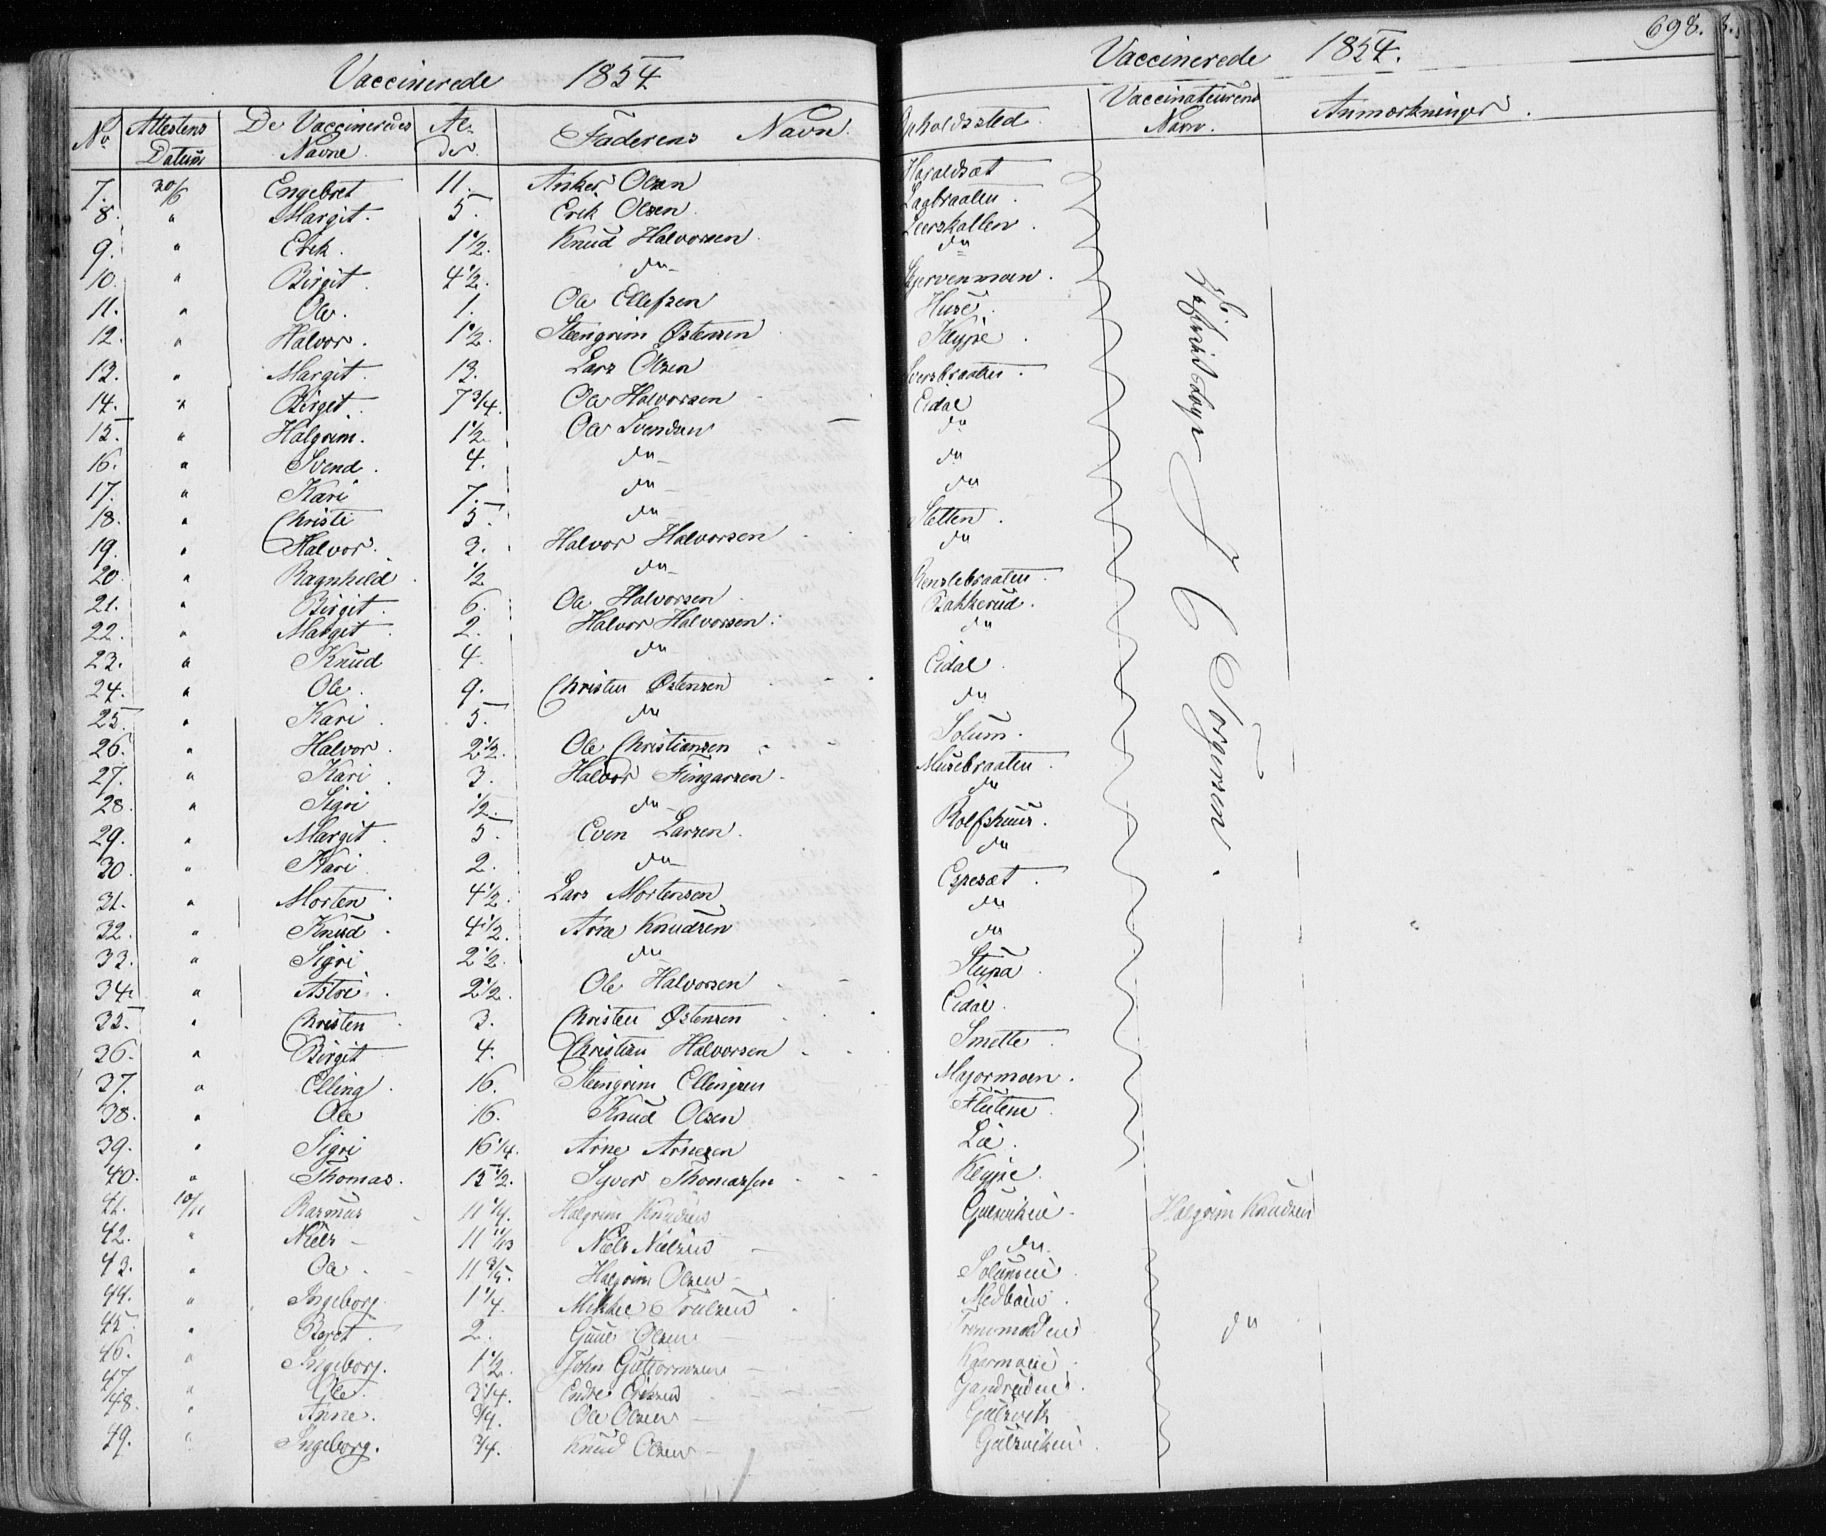 Vaccinerede 1854
Vaccinerede 1854. 698.
No. Attestens Datum De Vaccineredes Navne. Al- der. Faderens Navn. Opholdssted. Vaccinateurens Navn. Anmærkninger.
7. 30/6 Engebret 11. Anker Olsen Haraldsæt
8. " Margit. 5. Erik Olsen. Lagbraaten.
9. " Erik. 1 1/2. Knud Halvorsen. Leerskallen
10. " Birgit. 4 1/2. do do
11. " Ole. 1. Ole Ellefsen Skjervenmoen.
12. " Halvor. 1 1/2. Steengrim Østensen Huse.
13. " Margit. 13. Lars Olsen
14. " Birgit. 7 3/4. Ole Halvorsen
15. " Halgrim. 1 1/2. Ole Svendsen Eidal
16. " Svend. 4. do do
17. " Kari 7. do do
18. " Christi 5. do do
19. " Halvor. 3. Halvor Halvorsen Sletten.
20. " Ragnhild. 1/2 do do
21. " Birgit. 6. Ole Halvorsen
22. " Margit. 2. Halvor Halvorsen. Bakkerud.
23. " Knud 4. do do
24. " Ole. 9. Christen Østensen Eidal.
25. " Kari. 5. do do
26. " Halvor. 2 1/2. Ole Christiansen Solum.
27. " Kari. 3. Halvor Fingarsen. Musebraaten.
28. " Sigri 1/2. do do
29. " Margit. 5. Even Larsen. Rolfshuus.
30. " Kari. 2. do do
31. " Morten. 4 1/2. Lars Mortensen Espesæt.
32. " Knud. 4 1/2. Arne Knudsen do
33. " Sigri 2 1/2. do do
34. " Astri. 2 1/2. Ole Halvorsen Stupa.
35. " Christen 3. Christen Østensen Eidal.
36. " Birgit 4. Christian Halvorsen Smette.
37. " Elling. 16. Steengrim Ellingsen Majormoen.
38. " Ole 16. Knud Olsen
39. " Sigri 16 1/4. Arne Arnesen Lie.
40. " Thomas. 15 1/2. Syver Thomassen
41. 10/11 Rasmus 11 1/4. Halgrim Knudsen Gulsviken. Halgrim Knudsen
42. " Niels 11 11/13 Niels Nielsen do.
43. " Ole. Halgrim Olsen
44. " Ingeborg. 1 1/4. Mikkel Medbøen.
45. " Beret. 2. Olsen do
46. " Ingeborg. 1 1/2. John Guttormsen
47. " Ole. 3 1/4. Endre
48. " Anne. 3/4. Ole Olsen Gulsvik
49. " Ingeborg. 3/4. Knud Olsen Gulsviken